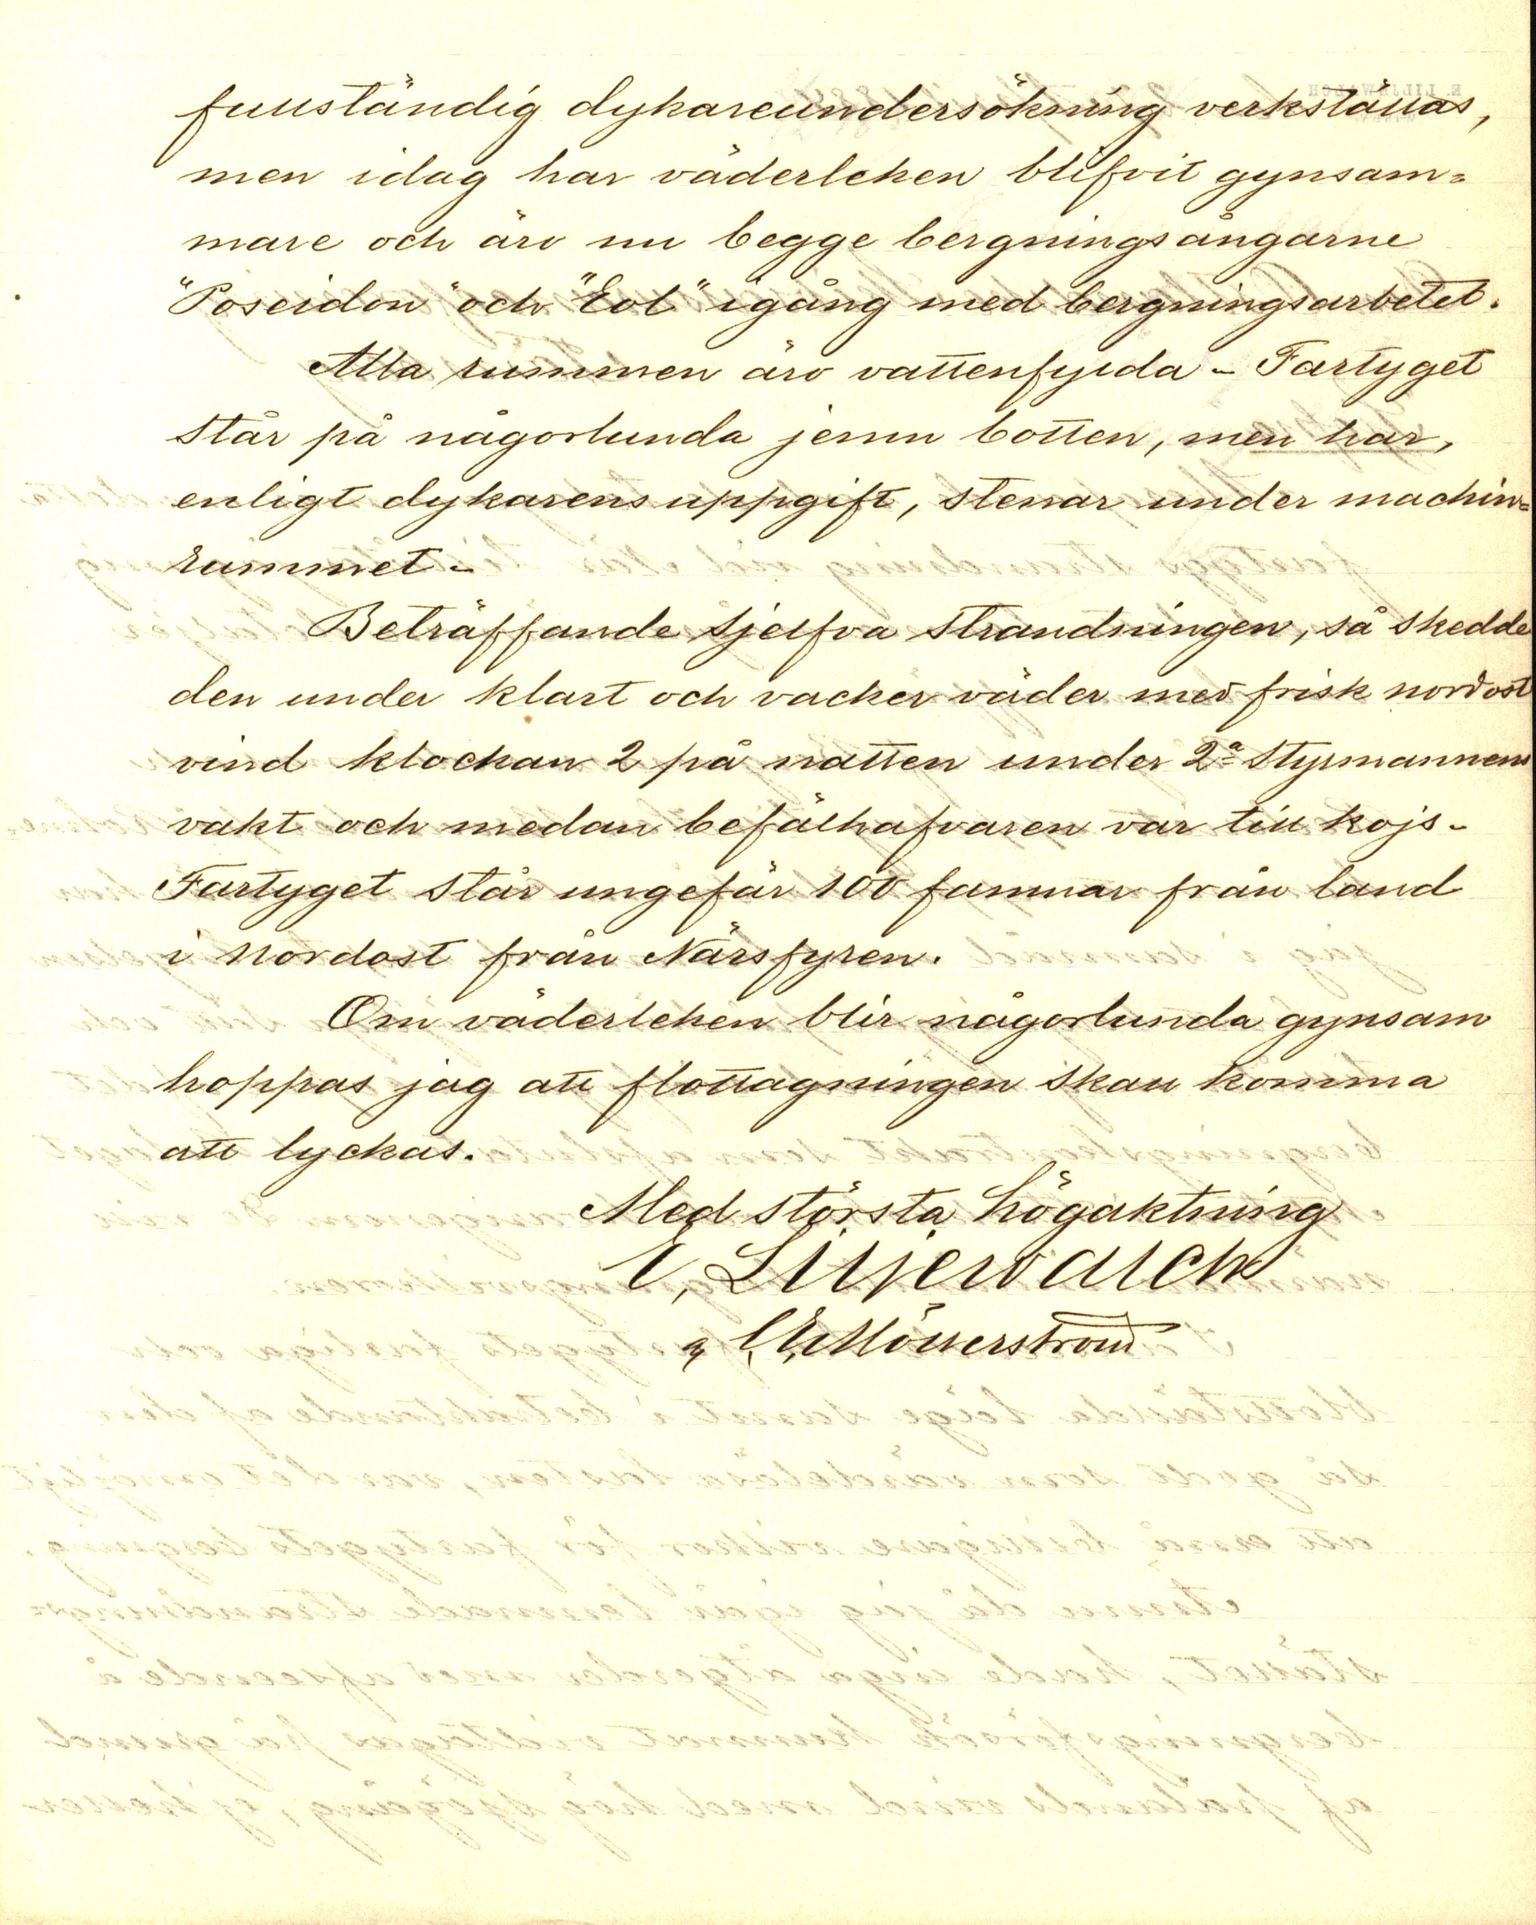 fullständig dykareundersökning verkställas,
men idag har väderleken blifvit gynsam=
mare och äro nu begge bergningsångarne
"Poseidon" och "Eol" igång med bergningsarbetet.
Alla rummen äro vattenfyllda – Fartyget
står på någorlunda jemn botten, men har,
enligt dykarens uppgift, stenar under machin=
rummet –
Beträffande sjelfva strandningen, så skedde
den under klart och vacker väder med frisk nordost
vind klockan 2 på natten under 2a Styrmannens
vakt och medan befälhafvaren var till kojs –
Fartyget står ungefär 100 famnar från land
i Nordost från Närsfyren.
Om väderleken blir någorlunda gynsam
hoppas jag att flottagningen skall komma
att lyckas.
Med största högaktning
E. Liljewalch